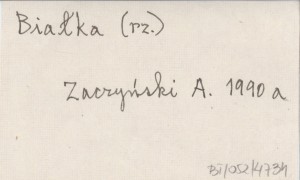 Białka (rz.)
Zaczyński A. 1990 a
BI/052/4734